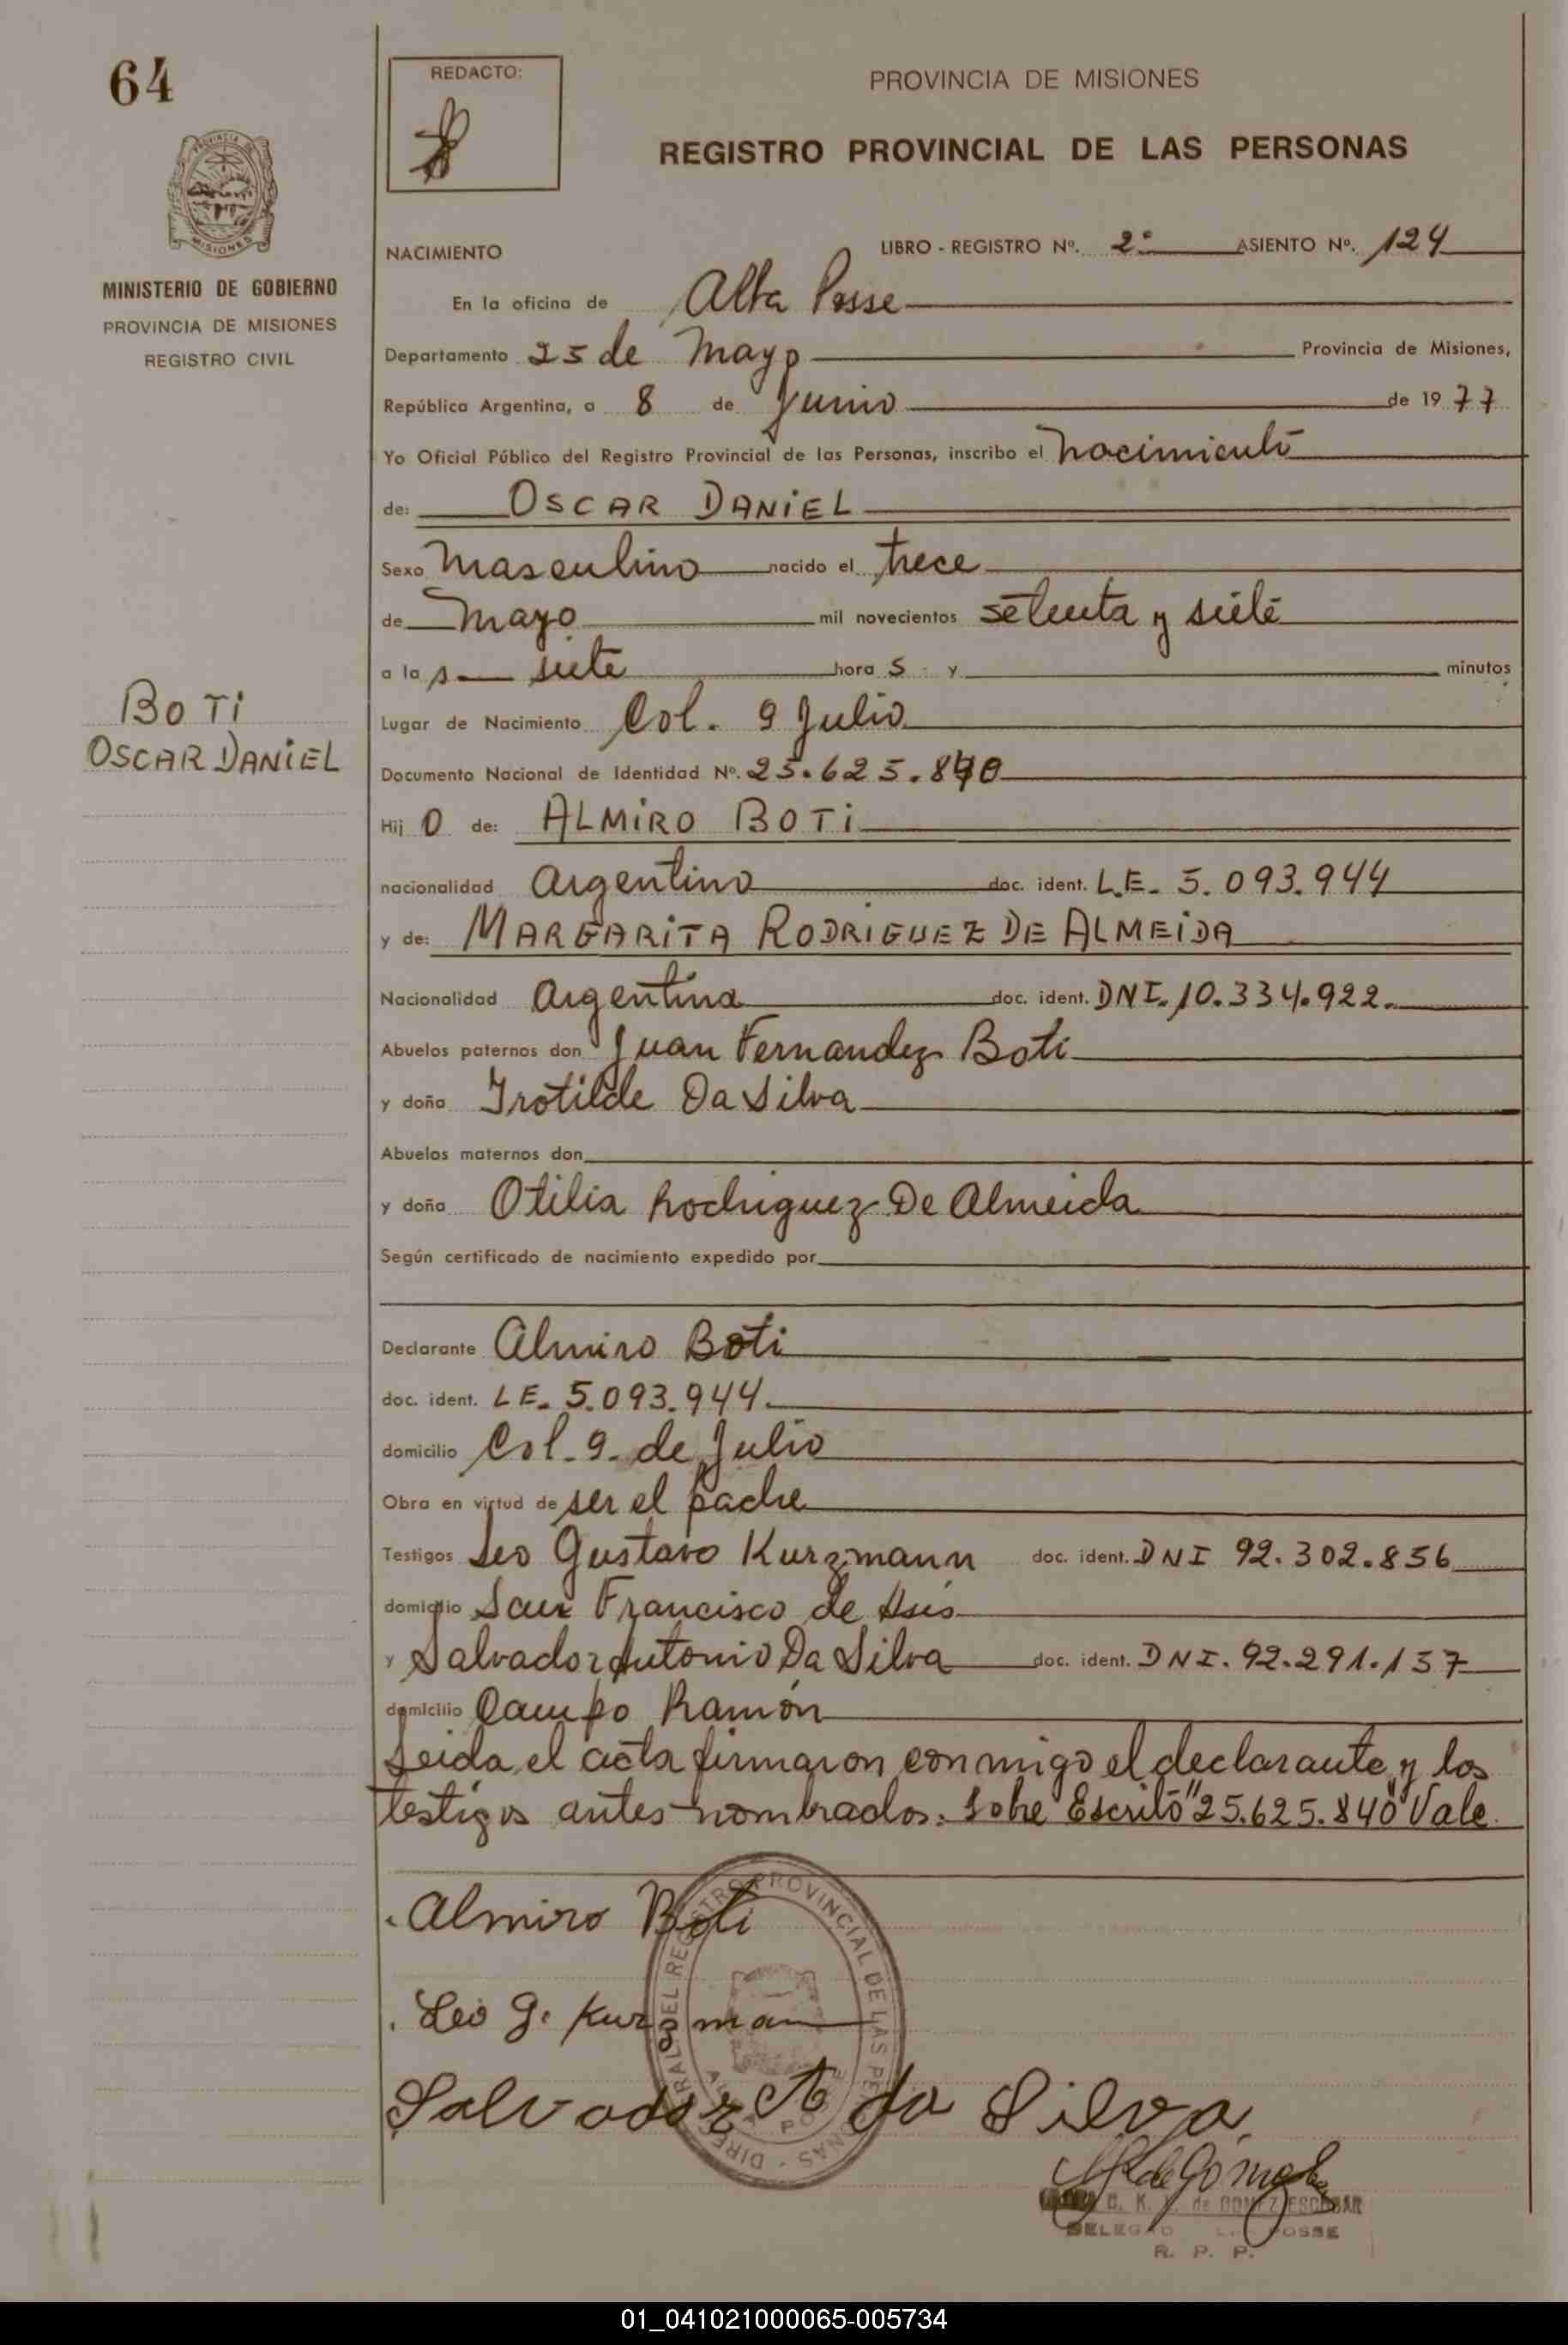 64
REDACTO:
PROVINCIA DE MISIONES
REGISTRO PROVINCIAL DE LAS PERSONAS
PROVINCIA DE
MISIONES
MINISTERIO DE GOBIERNO
PROVINCIA DE MISIONES
REGISTRO CIVIL
NACIMIENTO LIBRO - REGISTRO Nº. 2º ASIENTO Nº. 124
En la oficina de Alba Posse
Departamento 25 de Mayo Provincia de Misiones,
República Argentina, a 8 de Junio de 1977
Yo Oficial Público del Registro Provincial de las Personas, inscribo el nacimiento
de: OSCAR DANIEL
Sexo Masculino nacido el trece
de Mayo mil novecientos setenta y siete
a las siete horas y minutos
BOTI
OSCAR DANIEL
Lugar de Nacimiento Col. 9 Julio
Documento Nacional de Identidad Nº. 25.625.840
Hijo de: ALMIRO BOTI
nacionalidad Argentino doc. ident. L.E. 5.093.944
y de: MARGARITA RODRIGUEZ DE ALMEIDA
Nacionalidad Argentina doc. ident. DNI. 10.334.922.
Abuelos paternos don Juan Fernandez Boti
y doña Irotilde Da Silva
Abuelos maternos don
y doña Otilia Rodriguez De Almeida
Según certificado de nacimiento expedido por
Declarante Almiro Boti
doc. ident. LE. 5.093.944
domicilio Col. 9. de Julio
Obra en virtud de ser el padre
Testigos Leo Gustavo Kurzmann doc. ident. DNI 92.302.856
domicilio San Francisco de Asis
y Salvador Antonio Da Silva doc. ident. DNI. 92.291.157
domicilio Campo Ramón
Leida el acta firmaron conmigo el declarante y los
testigos antes nombrados. Sobre Escrito "25.625.840" Vale.
Almiro Boti
Leo G. Kurzmann
Salvador A da Silva
DEL REGISTRO PROVINCIAL DE LAS PERSONAS - DIRE
de Gómez
C. K. de GOMEZ ESCOBAR
POSSE
R. P. P.
01_041021000065-005734